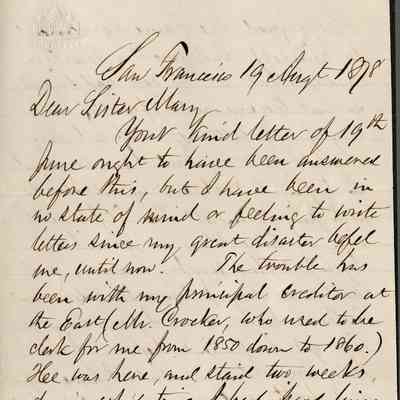 San Francisco 19 Augt 1878
Dear Sister Mary
Your kind letter of 19th
June ought to have been answered
before this, but I have been in
no state of mind or feeling to write
letters since my great disaster befel
me, until now. The trouble has
been with my principal creditor at
the East (Mr. Crocker, who used to be
clerk for me from 1850 down to 1860.)
He was here, and staid two weeks